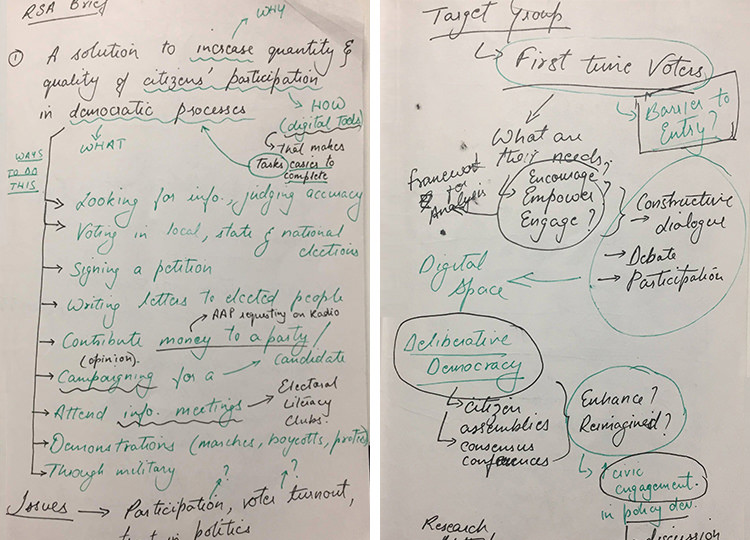 RSA Brief
WHY
① A solution to increase quantity &
quality of citizens' participation
in democratic processes
HOW
(digital tools)
WHAT
that makes
Tasks easier to
complete
WAYS
TO DO
THIS
→ Looking for info., judging accuracy
→ Voting in local, state & national
elections
→ Signing a petition
→ Writing letters to elected people
→ AAP requesting on Radio
→ Contribute money to a party /
(opinion).
candidate
→ Campaigning for a
→ Attend info. meetings → Electoral
Literacy
Clubs.
→ Demonstrations (marches, boycotts, protes
→ Though military
? ?
Issues → Participation, voter turnout,
in politics
Target Group
↳ First time Voters
↳ Barrier to
Entry?
What are
their needs,
Framework
for
Analysis
Encourage?
Empower
Engage?
Constructive
→ dialogue
→ Debate
→ Participation
Digital
Space
Deliberative
Democracy
↳ citizen
assemblies
↳ consensus
conferences
Enhance?
Reimagined?
↳ civic
engagement.
in policy dev.
Research
discussion